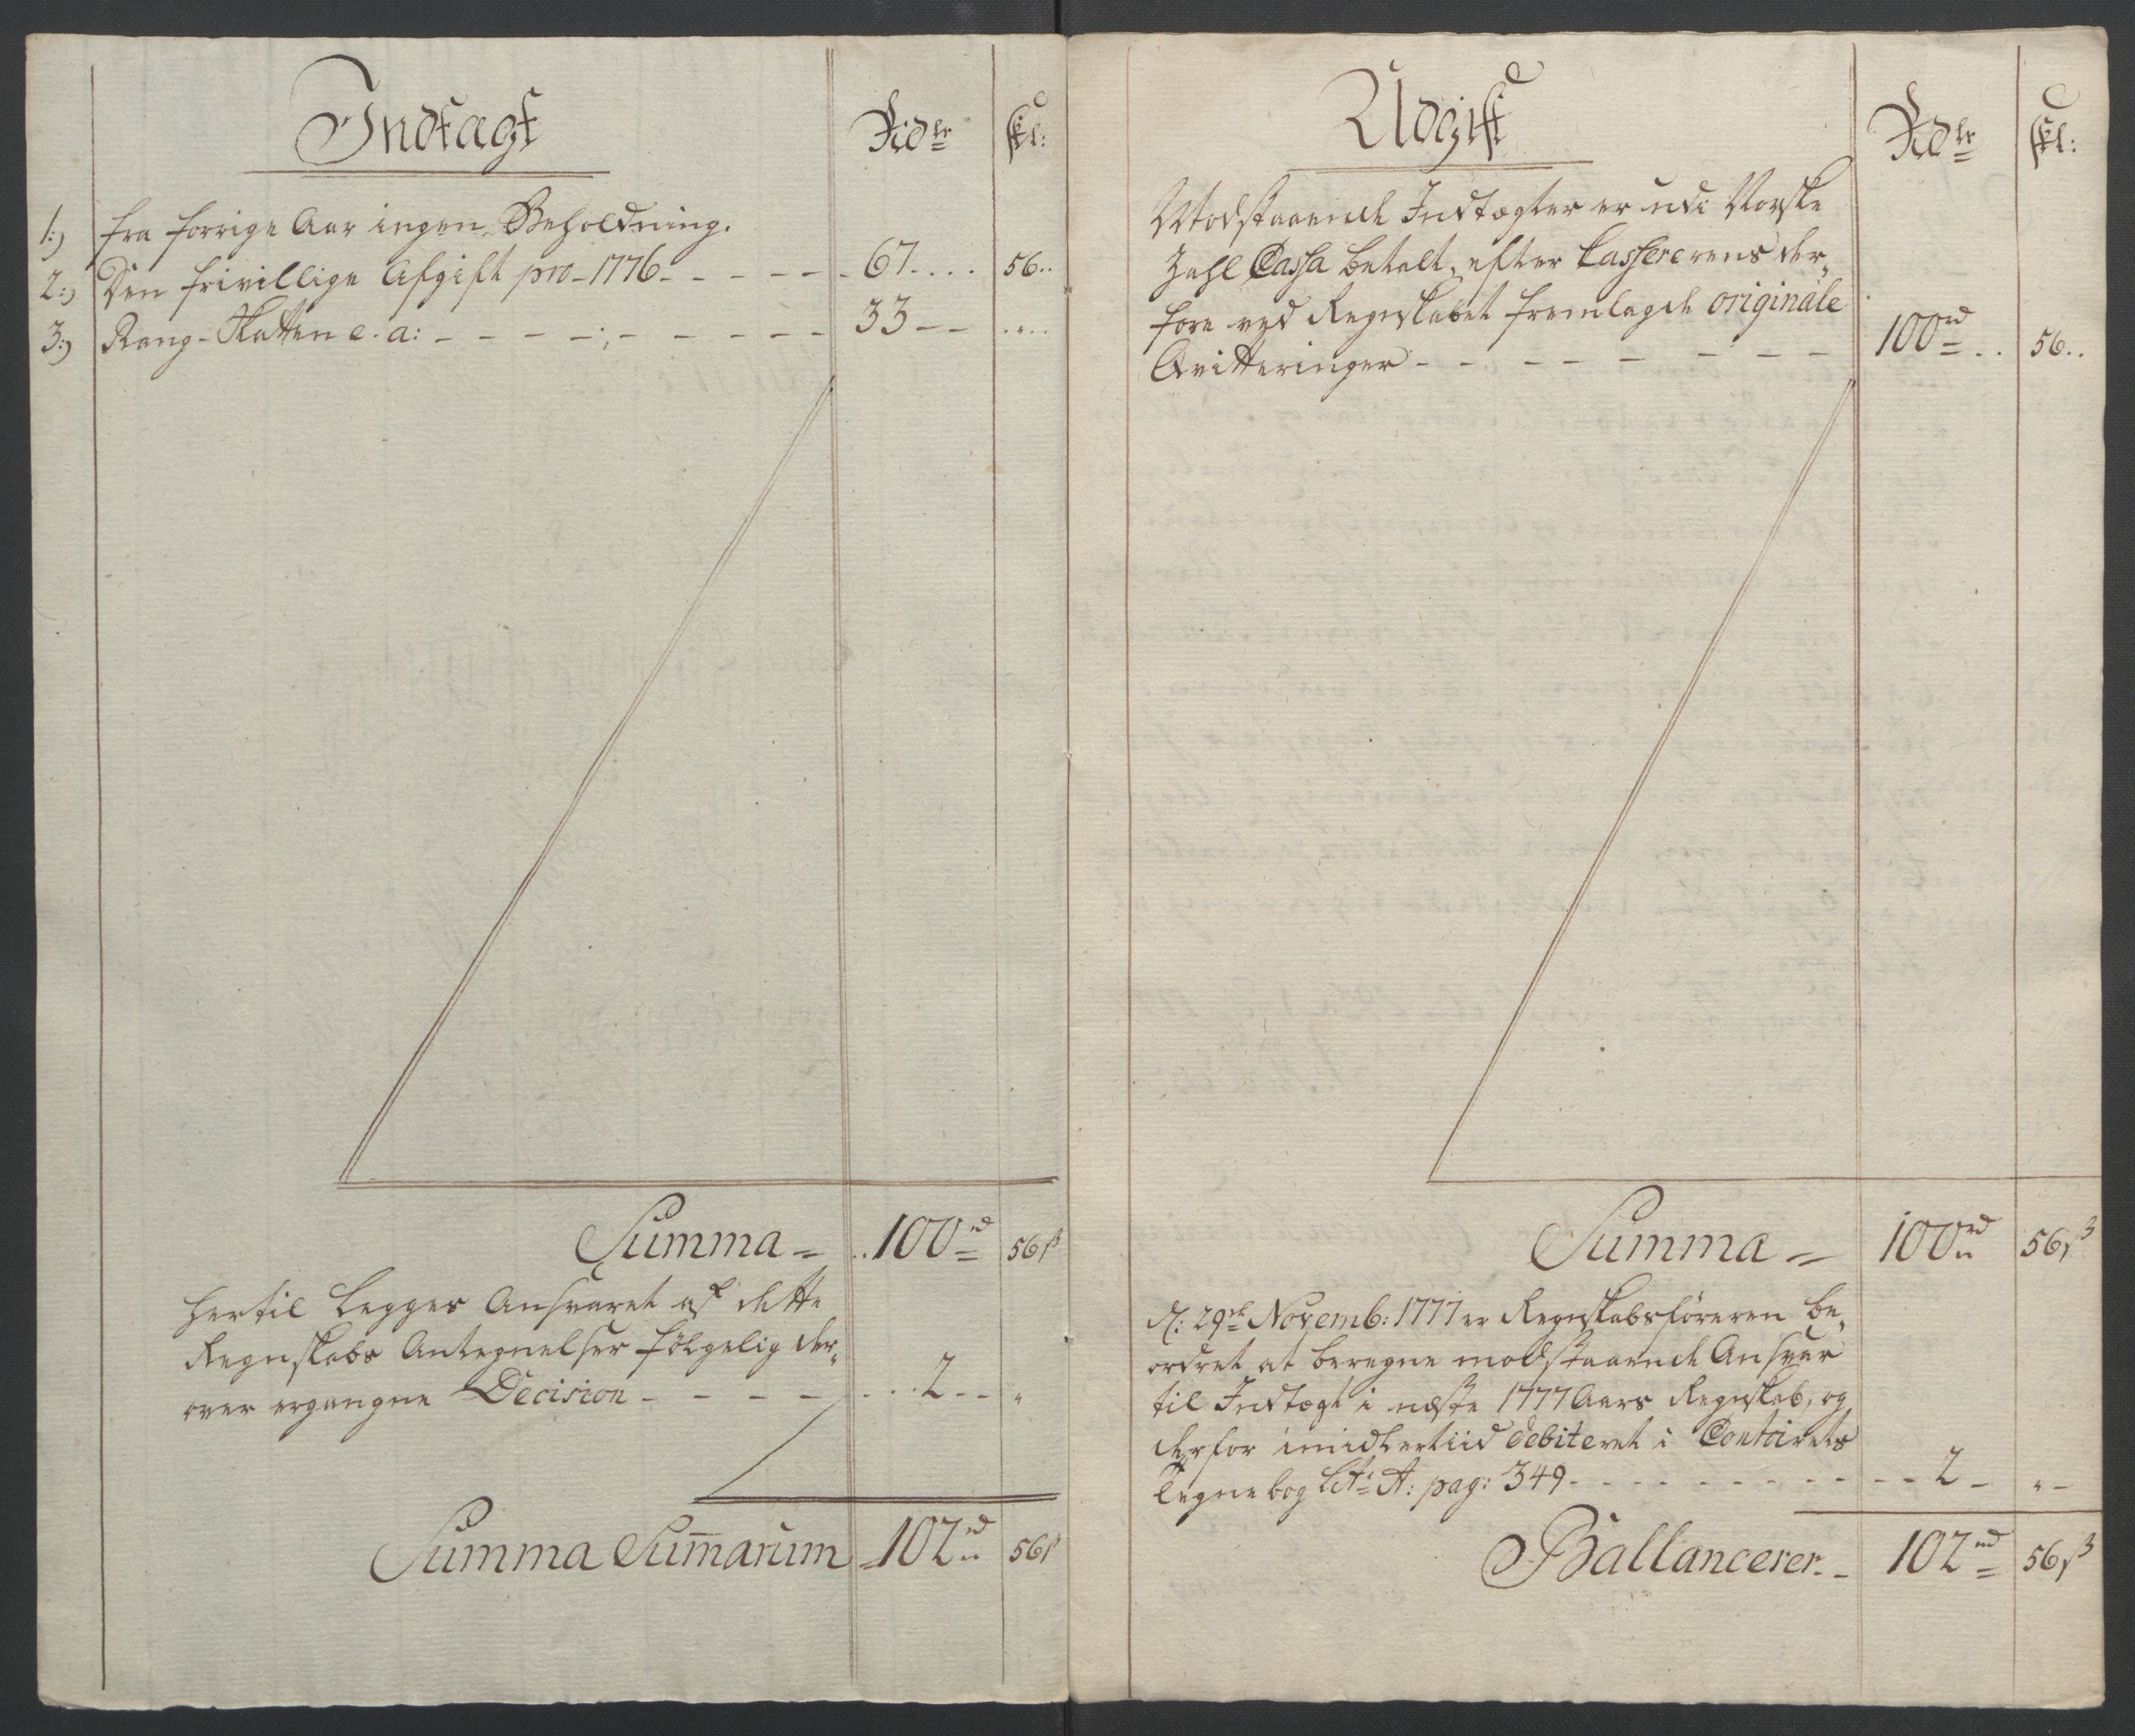 Indtægt
Rdlr
skl:
1:) fra forrige Aar ingen Beholdning.
2:) Den frivillige Afgift pro 1776 - - - - - - 67.... 56..
3:) Rang-Skatten e. a: - - - - - - - - - 33 - - ....
Summa - .. 100 rd 56 ß
Hertil Legges Ansvaret af dette
Regnskabs Antegnelser følgelig der„
over ergangne Decision - - - - ... 2 - - „
Summa Sum̄arum 102 rd 56 ß
Udgift
Rdlr
skl:
Modstaaende Indtægter er udi Norske
Zahl Cassa betalt, efter Cassererens der„
fore ved Regnskabet fremlagde originale
Qvitteringer - - - - - - - - 100 rd .. 56..
Summa - 100 rd 56 ß
d: 29de Novemb: 1777 er Regnskabsføreren be„
ordret at beregne modstaaende Ansvar
til Indtægt i næste 1777 Aars Regnskab, og
derfor imidlertiid debiteret i Contoirets
Tegnebog Litr A: pag: 349 - - - - - - - - 2 - „ -
Ballancerer - - 102 rd 56 ß